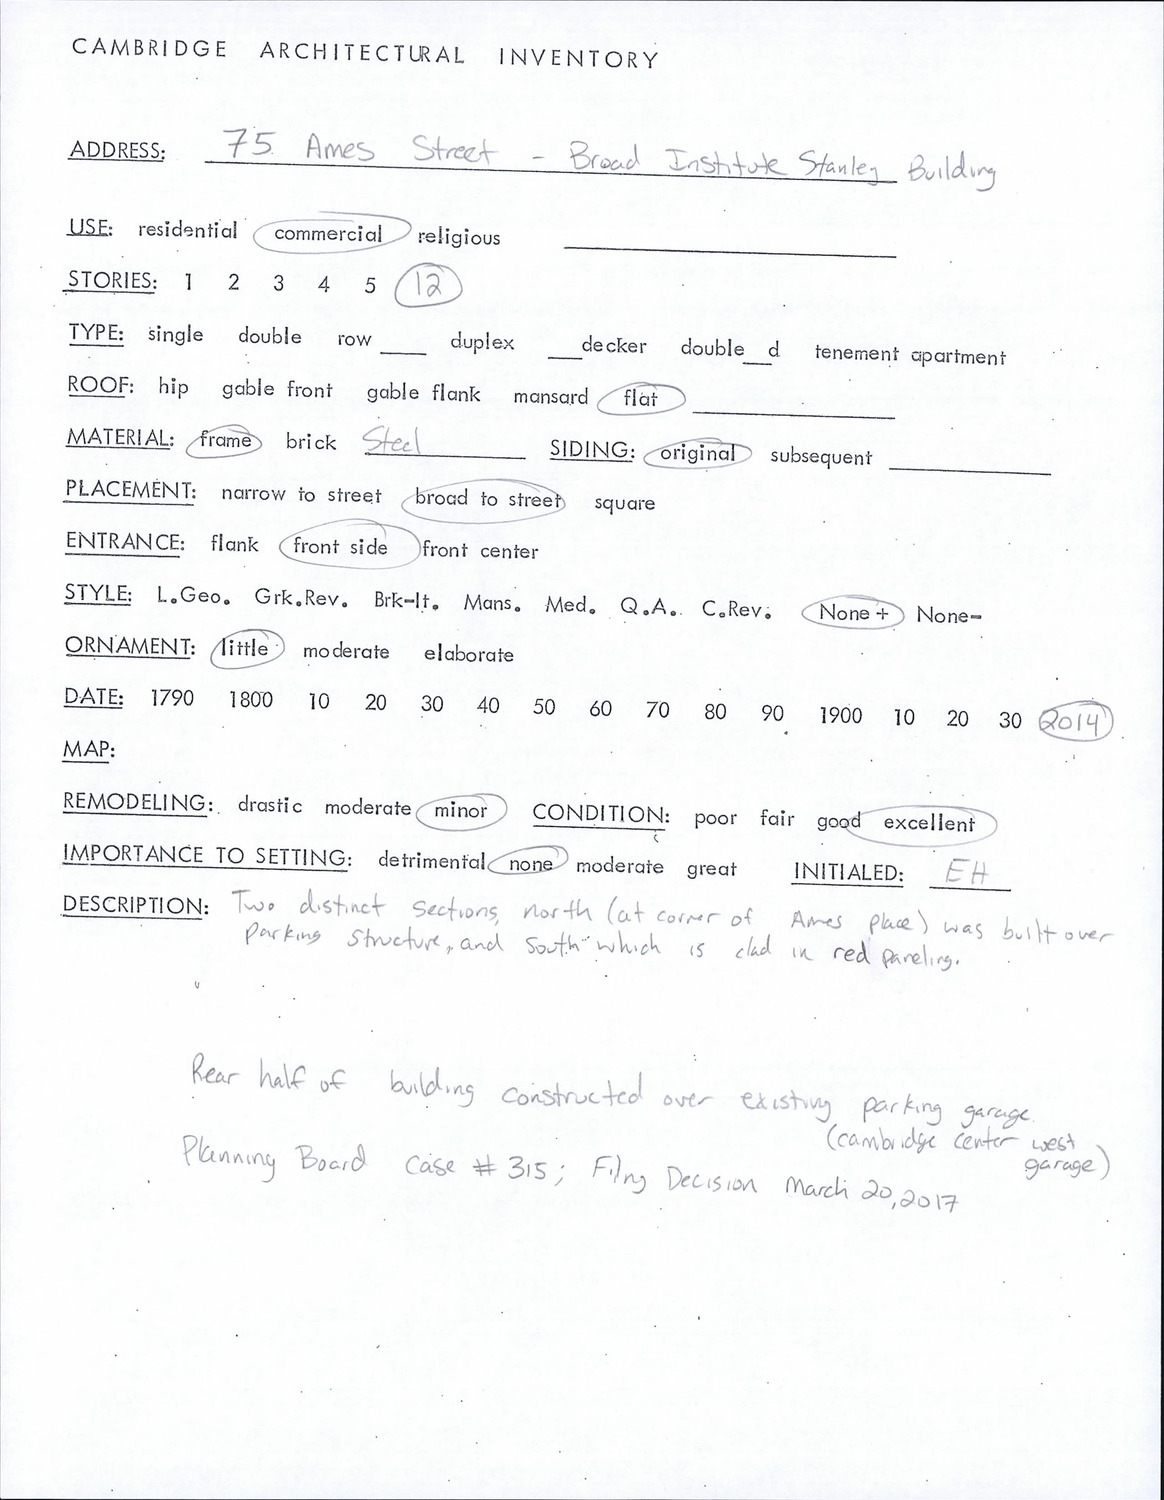 CAMBRIDGE ARCHITECTURAL INVENTORY
ADDRESS: 75 Ames Street - Broad Institute Stanley Building
USE: residential commercial religious
STORIES: 1 2 3 4 5 12
TYPE: single double row ___ duplex ___decker double__d tenement apartment
ROOF: hip gable front gable flank mansard flat
MATERIAL: frame brick Steel SIDING: original subsequent
PLACEMENT: narrow to street broad to street square
ENTRANCE: flank front side front center
STYLE: L.Geo. Grk.Rev. Brk-It. Mans. Med. Q.A. C.Rev. None + None-
ORNAMENT: little moderate elaborate
DATE: 1790 1800 10 20 30 40 50 60 70 80 90 1900 10 20 30 2014
MAP:
REMODELING: drastic moderate minor CONDITION: poor fair good excellent
IMPORTANCE TO SETTING: detrimental none moderate great INITIALED: EH
DESCRIPTION: Two distinct sections, north (at corner of Ames place) was built over
parking structure, and south which is clad in red paneling.
Rear half of building constructed over existing parking garage.
(cambridge center west
garage)
Planning Board Case # 315; Filing Decision March 20, 2017